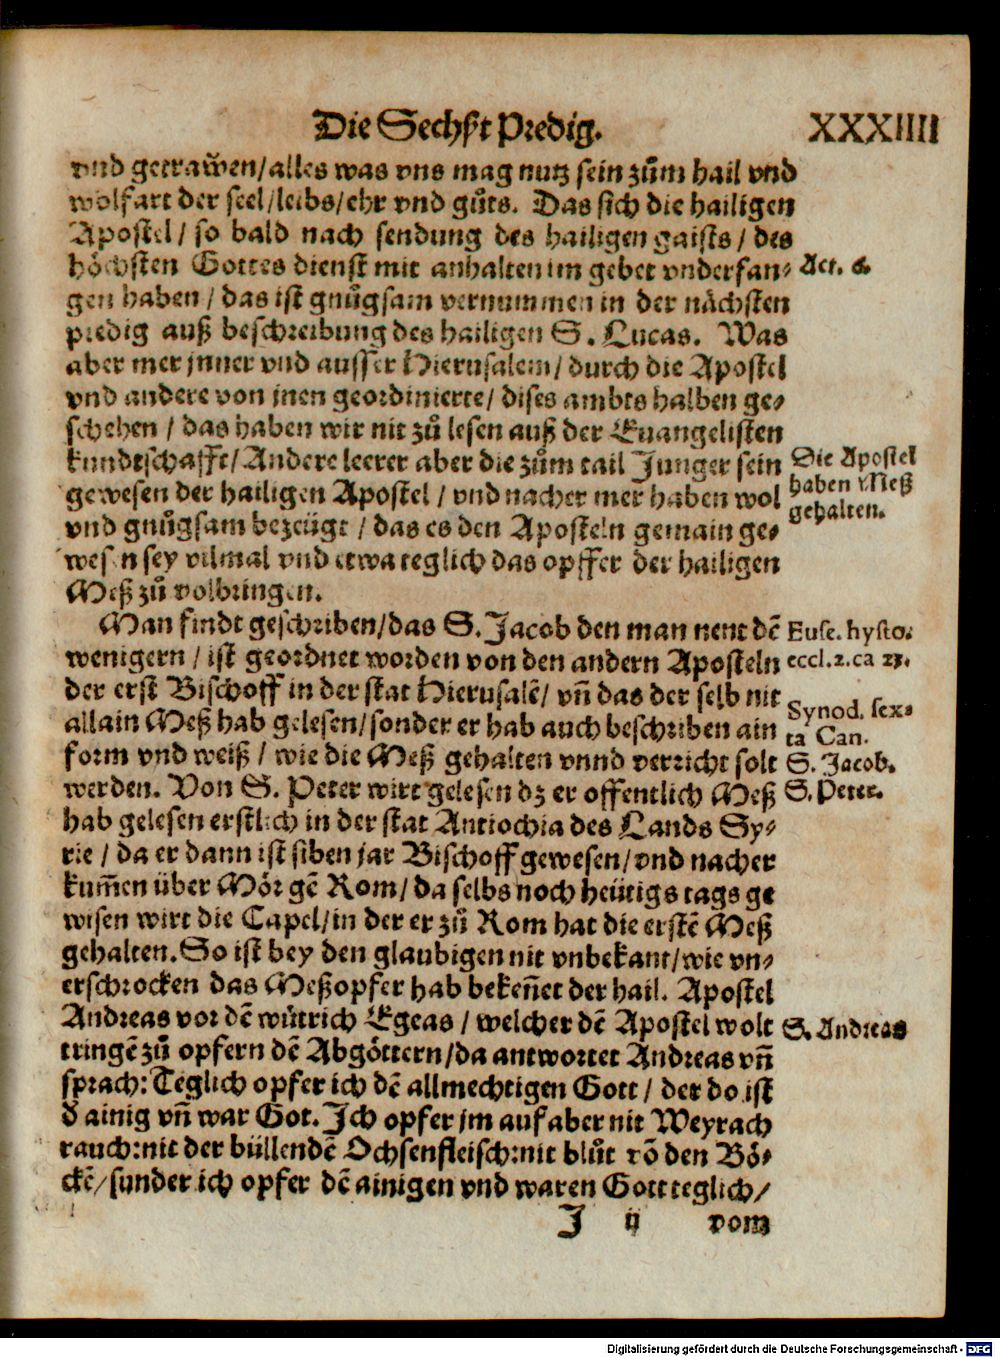 Die Sechst Predig. XXXIIII
vnd getrawͤen/alles was vns mag nutz sein zuͦm hail vnd
wolfart der seel/leibs/ehr vnd guͦts. Das sich die hailigen
Apostel/ so bald nach sendung des hailigen gaists/ des
hoͤchsten Gottes dienst mit anhalten im gebet vnderfan⸗
Act. 6.
gen haben/ das ist gnuͦgsam vernummen in der naͤchsten
predig auß beschreibung des hailigen S. Lucas. Was
aber mer jnner vnd ausser Hierusalem/ durch die Apostel
vnd andere von jnen geordinierte/ dises ambts halben ge⸗
schehen/ das haben wir nit zuͦ lesen auß der Euangelisten
kundtschafft/Andere leerer aber die zuͦm tail Junger sein
gewesen der hailigen Apostel/ vnd nacher mer haben wol
Die Apostel
haben Meß
gehalten.
vnd gnuͦgsam bezeügt/ das es den Aposteln gemain ge⸗
wesen sey vilmal vnd etwa teglich das opffer der hailigen
Meß zuͦ volbringen.
Man findt geschriben/das S. Jacob den man nent dē
Euse. hysto.
wenigern/ ist geordnet worden von den andern Aposteln
eccl.2.ca 23.
der erst Bischoff in der stat Hierusalē/ vn̄ das der selb nit
allain Meß hab gelesen/sonder er hab auch beschriben ain
Synod. sex⸗
ta Can.
form vnd weiß/ wie die Meß gehalten vnnd verricht solt
S. Jacob.
werden. Von S. Peter wirt gelesen dz er offentlich Meß
S. Peter.
hab gelesen erstlich in der stat Antiochia des Lands Sy⸗
rie/ da er dann ist siben jar Bischoff gewesen/vnd nacher
kum̄en über Moͤr gē Rom/da selbs noch heütigs tags ge
wisen wirt die Capel/in der er zuͦ Rom hat die erstē Meß
gehalten. So ist bey den glaubigen nit vnbekant/wie vn⸗
erschrocken das Meßopfer hab beken̄et der hail. Apostel
Andreas vor dē wuͤtrich Egeas/ welcher dē Apostel wolt
S. Andreas
tringē zuͦ opfern dē Abgoͤttern/da antwortet Andreas vn̄
sprach: Teglich opfer ich dē allmechtigen Gott/ der do ist
d ainig vn̄ war Got. Ich opfer jm auf aber nit Weyrach
rauch:nit der büllendē Ochsenfleisch:nit bluͦt vō den Boͤ⸗
ckē/sunder ich opfer dē ainigen vnd waren Gott teglich/
J ij vom
Digitalisierung gefördert durch die Deutsche Forschungsgemeinschaft - DFG